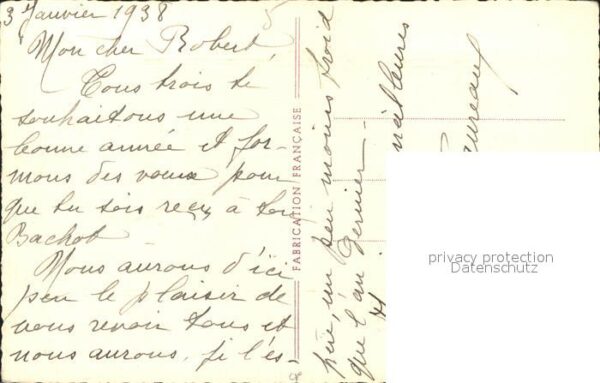 3 Janvier 1938
Mon cher Robert,
Tous trois te
souhaitons une
bonne année et for-
mons des vœux pour
que tu sois reçu à ton
Bachot
Nous aurons d'ici
peu le plaisir de
vous revoir tous et
nous aurons, je l'es-
père, un peu moins froid
que l'an dernier -
meilleures
FABRICATION FRANÇAISE
privacy protection
Datenschutz